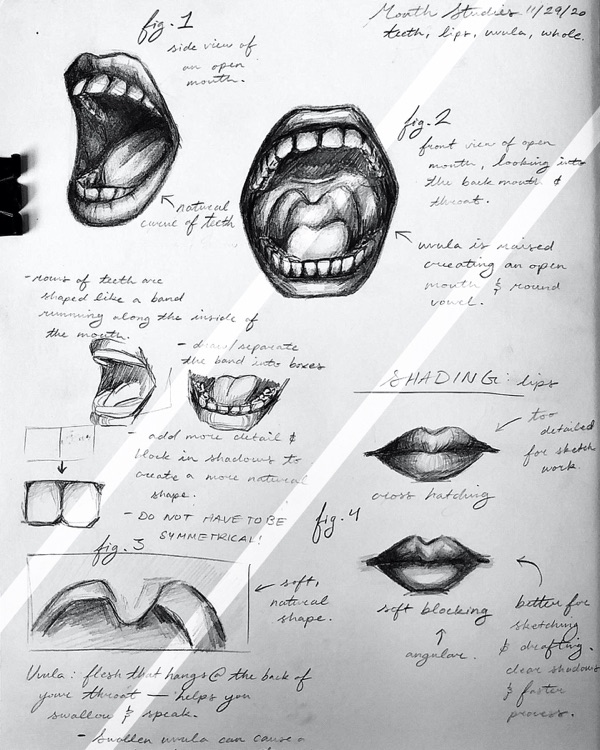 Mouth Studies 11/29/20
teeth, lips, uvula, whole.
fig. 1
side view of
an open
mouth.
natural
curve of teeth
fig. 2
front view of open
mouth, looking into
the back mouth &
throat.
uvula is raised
creating an open
mouth & round
vowel.
- rows of teeth are
shaped like a band
running along the inside of
the mouth.
- draw/separate
the band into boxes
- add more detail &
block in shadows to
create a more natural
shape.
- DO NOT HAVE TO BE
SYMMETRICAL!
fig. 3
soft,
natural
shape.
Uvula: flesh that hangs @ the back of
your throat — helps you
swallow & speak.
- Swollen uvula can cause a
SHADING: lips
too
detailed
for sketch
work.
cross hatching
fig. 4
soft blocking
angular.
better for
sketching
& drafting.
clear shadows
& faster
process.